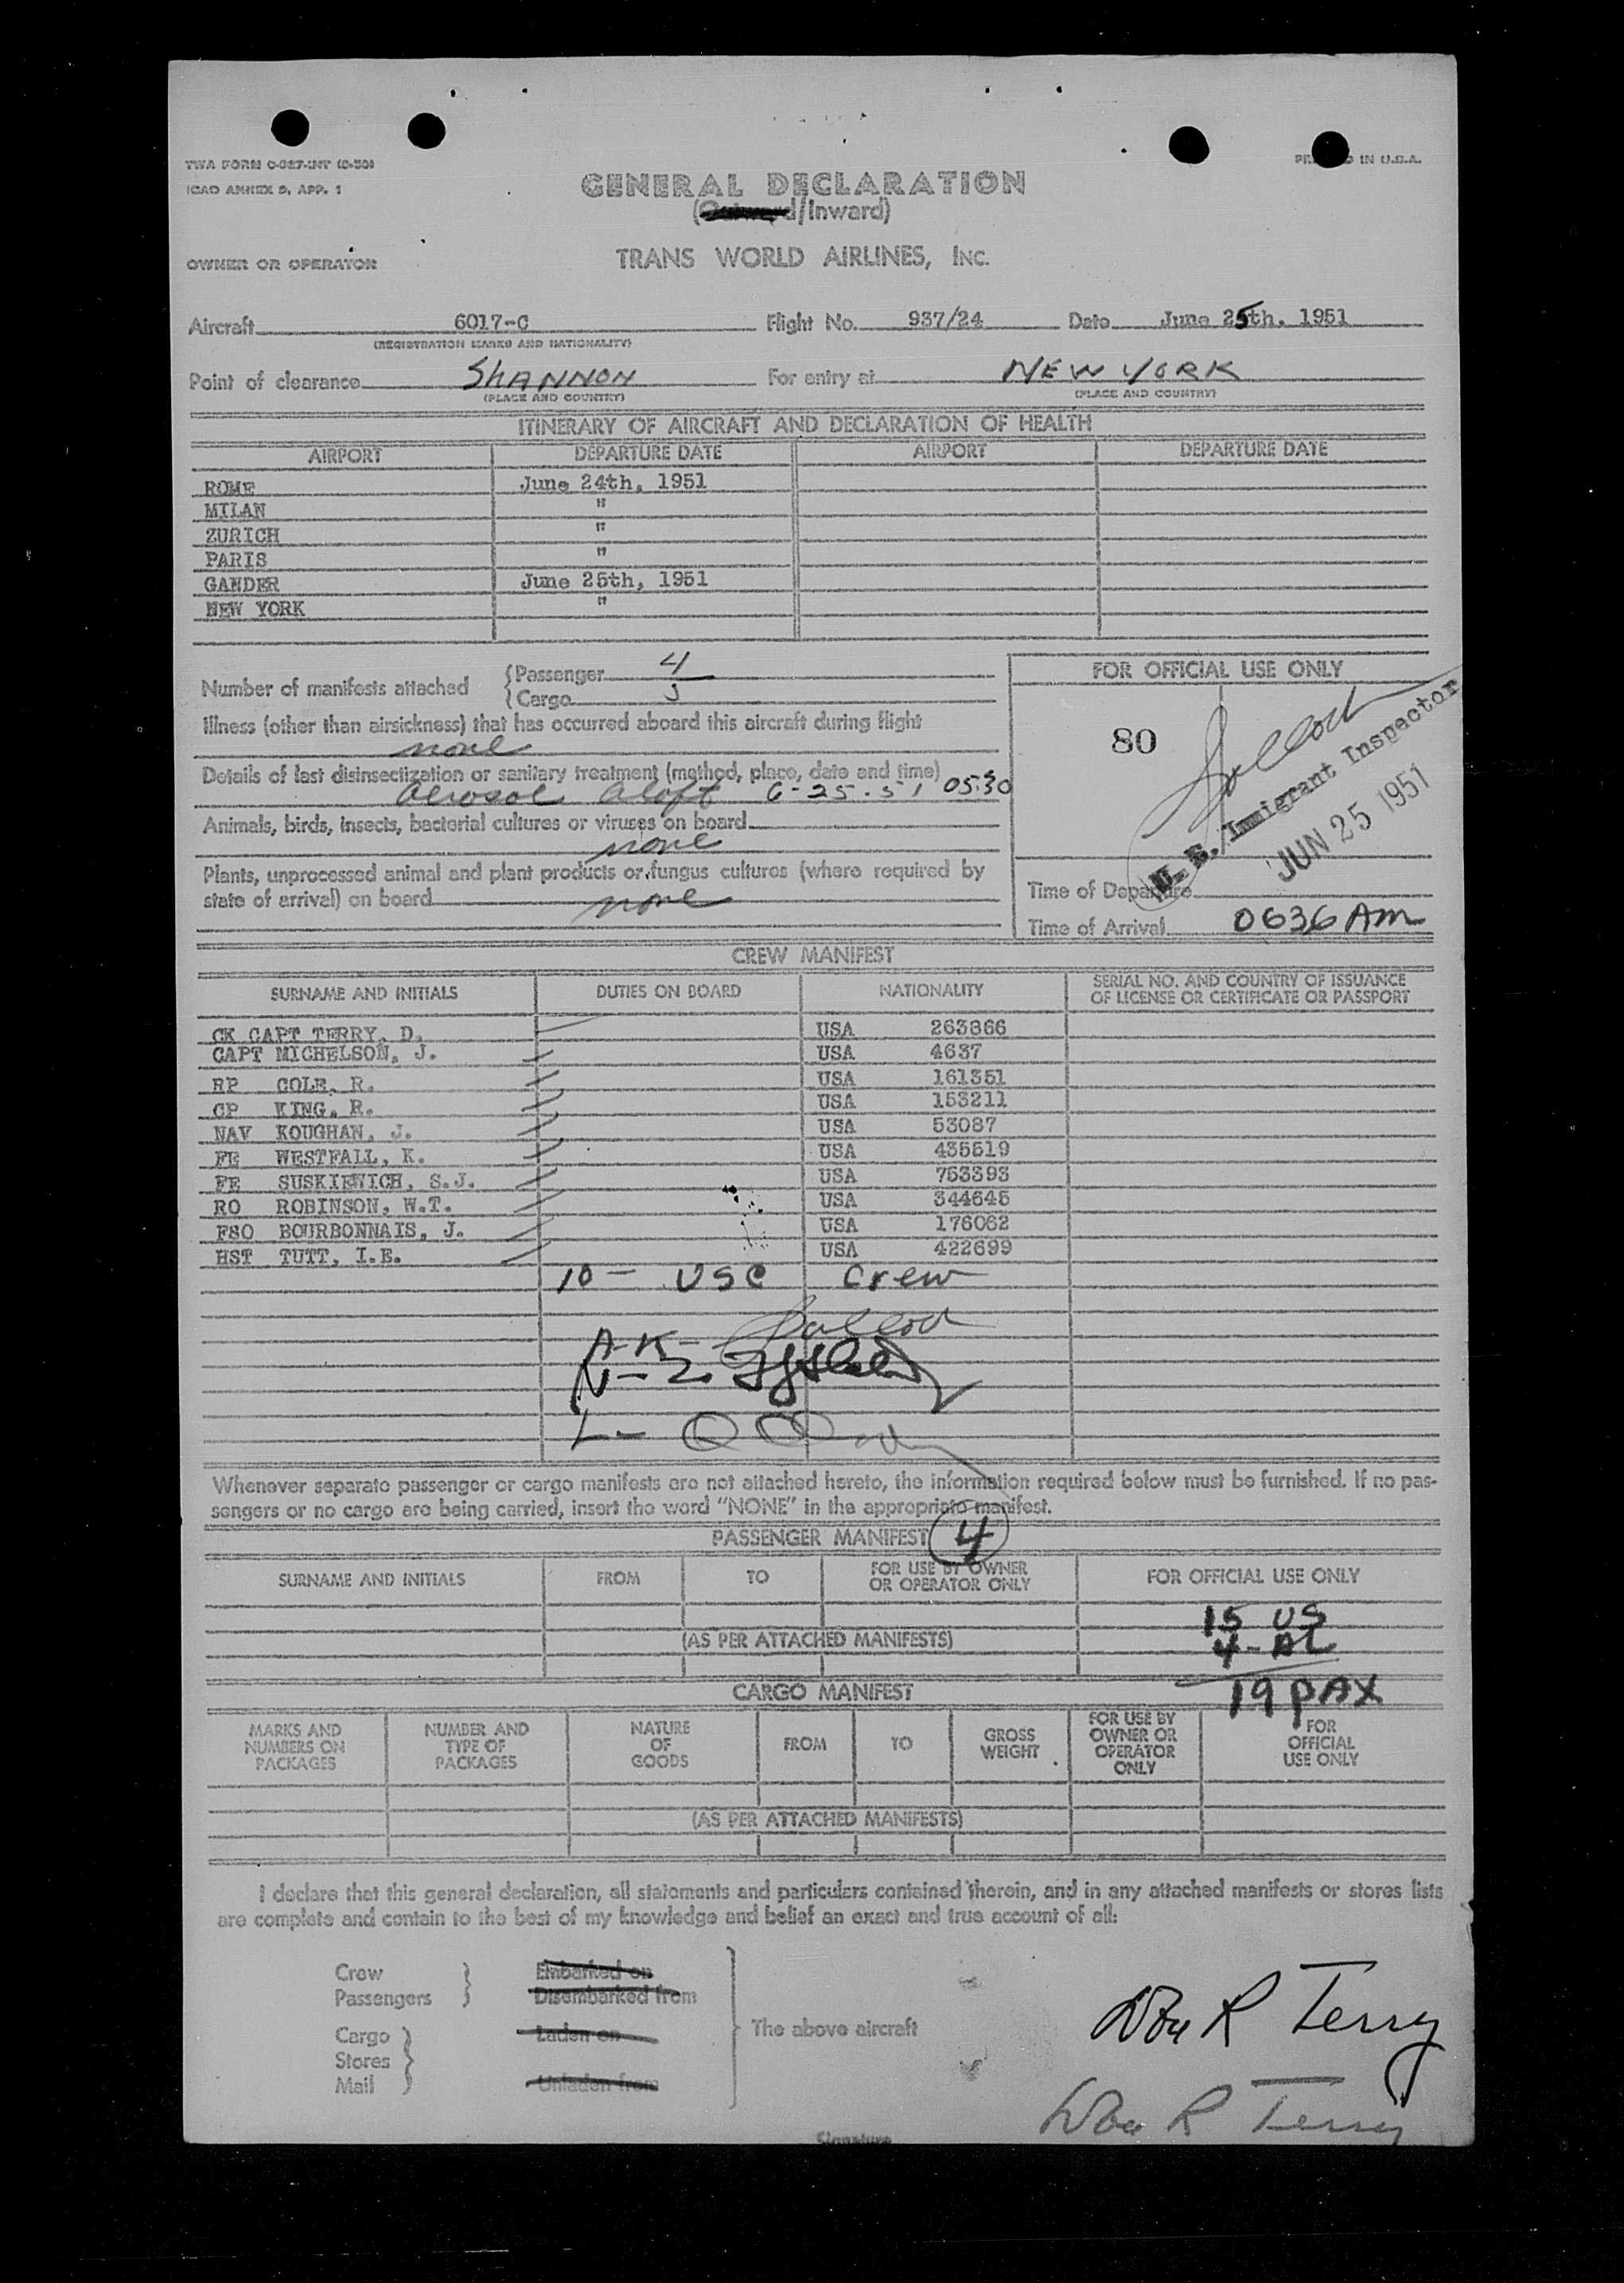 TWA FORM C-327-INT (6-50)
ICAO ANNEX 9, APP. 1
IN U.S.A.
GENERAL DECLARATION
(Outward/Inward)
OWNER OR OPERATOR
TRANS WORLD AIRLINES, INC.
Aircraft 6017-C Flight No. 937/24 Date June 25th, 1951
(REGISTRATION MARKS AND NATIONALITY)
Point of clearance SHANNON For entry at NEW YORK
(PLACE AND COUNTRY) (PLACE AND COUNTRY)
ITINERARY OF AIRCRAFT AND DECLARATION OF HEALTH
AIRPORT DEPARTURE DATE AIRPORT DEPARTURE DATE
ROME June 24th, 1951
MILAN "
ZURICH "
PARIS "
GANDER June 25th, 1951
NEW YORK "
Number of manifests attached
Passenger 4
Cargo
Illness (other than airsickness) that has occurred aboard this aircraft during flight
none
Details of last disinsectization or sanitary treatment (method, place, date and time)
Aerosol Aloft 6-25-51 0530
Animals, birds, insects, bacterial cultures or viruses on board
none
Plants, unprocessed animal and plant products or fungus cultures (where required by
state of arrival) on board none
FOR OFFICIAL USE ONLY
80
U. S. Immigrant Inspector
JUN 25 1951
Time of Departure
Time of Arrival 0636 AM
CREW MANIFEST
SURNAME AND INITIALS DUTIES ON BOARD NATIONALITY SERIAL NO. AND COUNTRY OF ISSUANCE OF LICENSE OR CERTIFICATE OR PASSPORT
CK CAPT TERRY, D. USA 263866
CAPT MICHELSON, J. USA 4637
RP COLE, R. USA 161351
CP KING, R. USA 153211
NAV KOUGHAN, J. USA 53087
FE WESTFALL, K. USA 435519
FE SUSKIEWICH, S.J. USA 753393
RO ROBINSON, W.T. USA 344645
FSO BOURBONNAIS, J. USA 176062
HST TUTT, I.E. USA 422699
10 - USC Crew
Whenever separate passenger or cargo manifests are not attached hereto, the information required below must be furnished. If no pas-
sengers or no cargo are being carried, insert the word "NONE" in the appropriate manifest.
PASSENGER MANIFEST 4
SURNAME AND INITIALS FROM TO FOR USE BY OWNER OR OPERATOR ONLY FOR OFFICIAL USE ONLY
15 US
(AS PER ATTACHED MANIFESTS)
4 - AL
19 PAX
CARGO MANIFEST
MARKS AND NUMBERS ON PACKAGES NUMBER AND TYPE OF PACKAGES NATURE OF GOODS FROM TO GROSS WEIGHT FOR USE BY OWNER OR OPERATOR ONLY FOR OFFICIAL USE ONLY
(AS PER ATTACHED MANIFESTS)
I declare that this general declaration, all statements and particulars contained therein, and in any attached manifests or stores lists
are complete and contain to the best of my knowledge and belief an exact and true account of all:
Crew Embarked on
Passengers Disembarked from
Cargo Laden on The above aircraft
Stores
Mail Unladen from
Don R Terry
Don R Terry
Signature